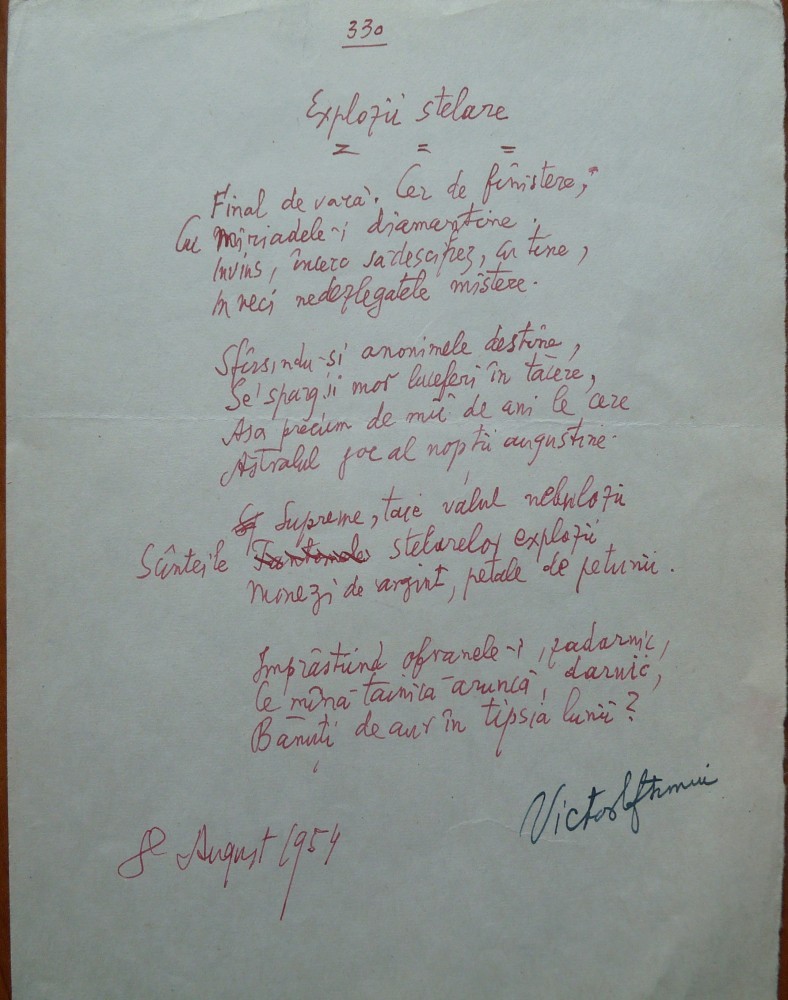 330
Explozii stelare
Final de vară. Cer de finistere,
Cu miriadele-i diamantine.
Invins, încerc sa descifrez, cu tine,
In veci nedezlegatele mistere.
Sfîrsindu-si anonimele destine,
Se sparg si mor luceferi în tăcere,
Asa precum de mii de ani le cere
Astralul joc al noptii augustine.
Supreme, taie vălul nebulozii
Scînteile stelarelor explozii
Monezi de argint, petale de petunii.
Imprăstiind ofranele-i, zadarnic,
Ce mînă tainică aruncă, darnic,
Bănuți de aur în tipsia lunii?
Victor Eftimiu
8 August 1954